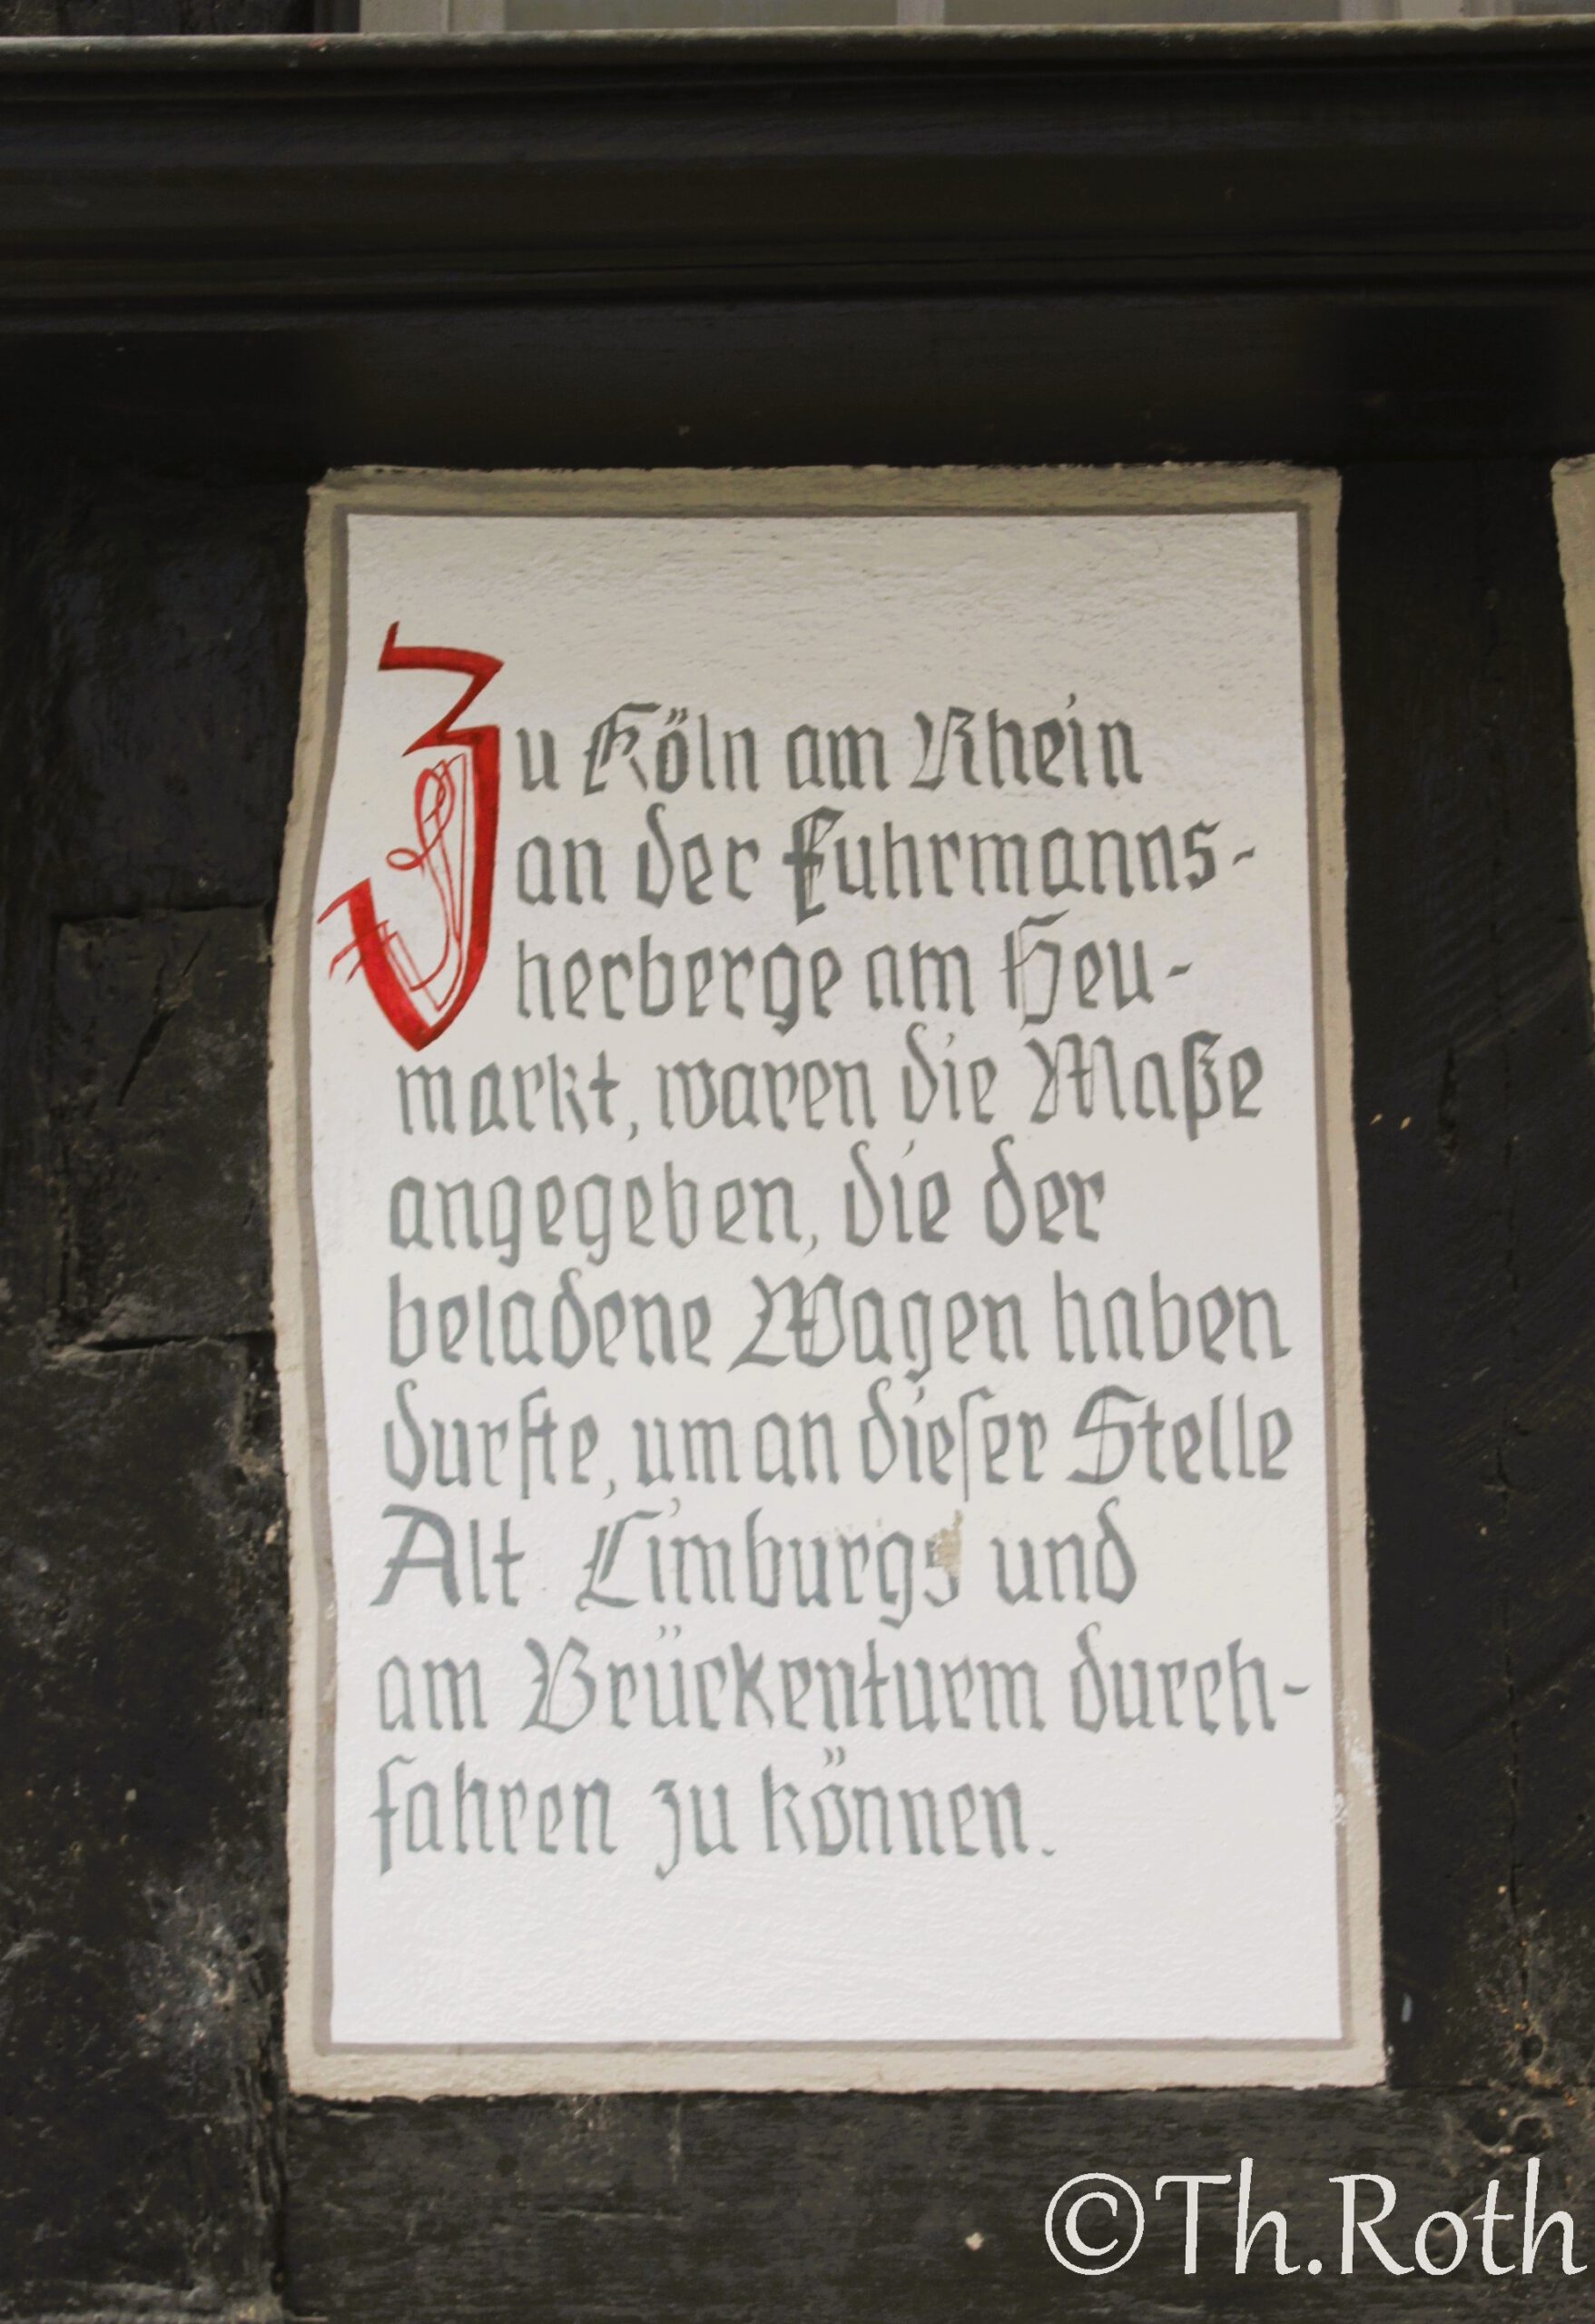 Zu Köln am Rhein
an der Fuhrmanns-
herberge am Heu-
markt, waren die Maße
angegeben, die der
beladene Wagen haben
durfte, um an dieſer Stelle
Alt Limburgs und
am Brückenturm durch-
fahren zu können.
©Th.Roth